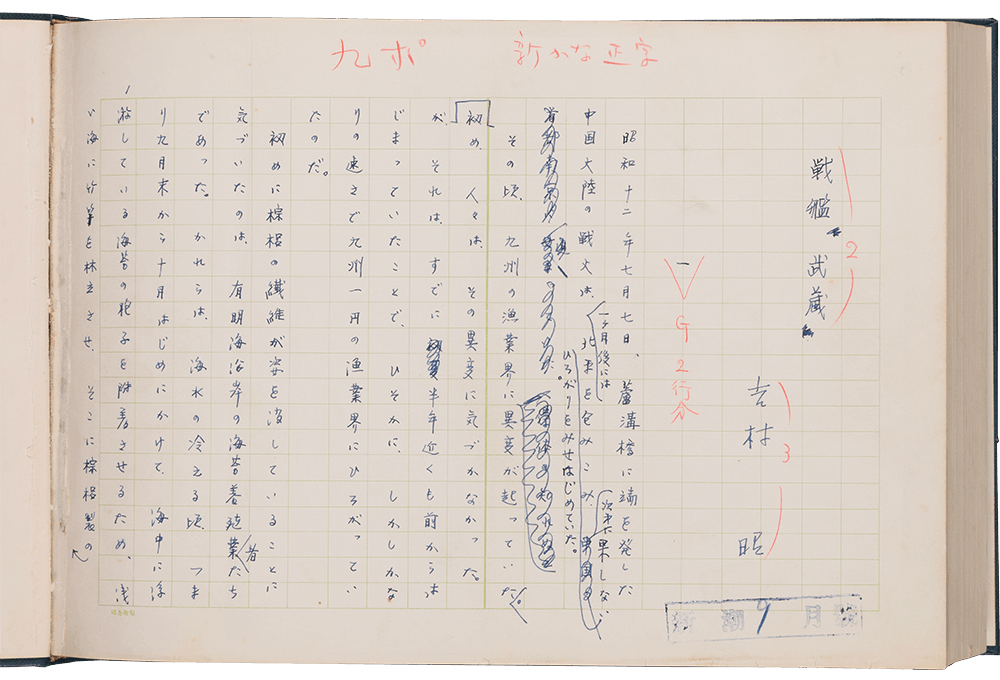 九ポ 新かな正字
戦艦武蔵
2
吉村 昭
3
一
G 2行分
昭和十二年七月七日、蘆溝橋に端を発した
中国大陸の戦火は、一ケ月後には北平を包みこみ、次第に果しない
ひろがりをみせはじめていた。
その頃、九州の漁業界に異変が起っていた。
初め、人々は、その異変に気づかなかった。
が、それは、すでに半年近くも前からは
じまっていたことで、ひそかに、しかしかな
りの速さで九州一円の漁業界にひろがってい
たのだ。
初めに棕梠の繊維が姿を消していることに
気づいたのは、有明海沿岸の海苔養殖業者たち
であった。かれらは、海水の冷える頃、つま
り九月末から十月はじめにかけて、海中に浮
游している海苔の胞子を附着させるため、浅
い海に竹竿を林立させ、そこに棕梠製の
1
新潮 9月号